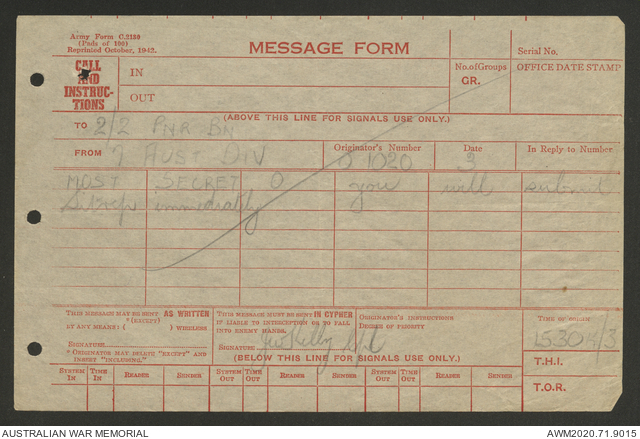 Army Form C.2130
(Pads of 100)
Reprinted October, 1942.
MESSAGE FORM
Serial No.
CALL AND INSTRUC-TIONS
IN
OUT
No. of Groups
GR.
OFFICE DATE STAMP
(ABOVE THIS LINE FOR SIGNALS USE ONLY.)
TO 2/2 PNR BN
FROM 7 AUST DIV
Originator's Number
O 1020
Date
3
In Reply to Number
MOST SECRET O you will submit
immediately
THIS MESSAGE MAY BE SENT AS WRITTEN
*(EXCEPT)
BY ANY MEANS ( ) WIRELESS
SIGNATURE
* ORIGINATOR MAY DELETE "EXCEPT" AND
INSERT "INCLUDING."
THIS MESSAGE MUST BE SENT IN CYPHER
IF LIABLE TO INTERCEPTION OR TO FALL
INTO ENEMY HANDS.
SIGNATURE
ORIGINATOR'S INSTRUCTIONS
DEGREE OF PRIORITY
TIME OF ORIGIN
T.H.I.
T.O.R.
(BELOW THIS LINE FOR SIGNALS USE ONLY.)
SYSTEM IN TIME IN READER SENDER SYSTEM OUT TIME OUT READER SENDER SYSTEM OUT TIME OUT READER SENDER
AUSTRALIAN WAR MEMORIAL
AWM2020.71.9015